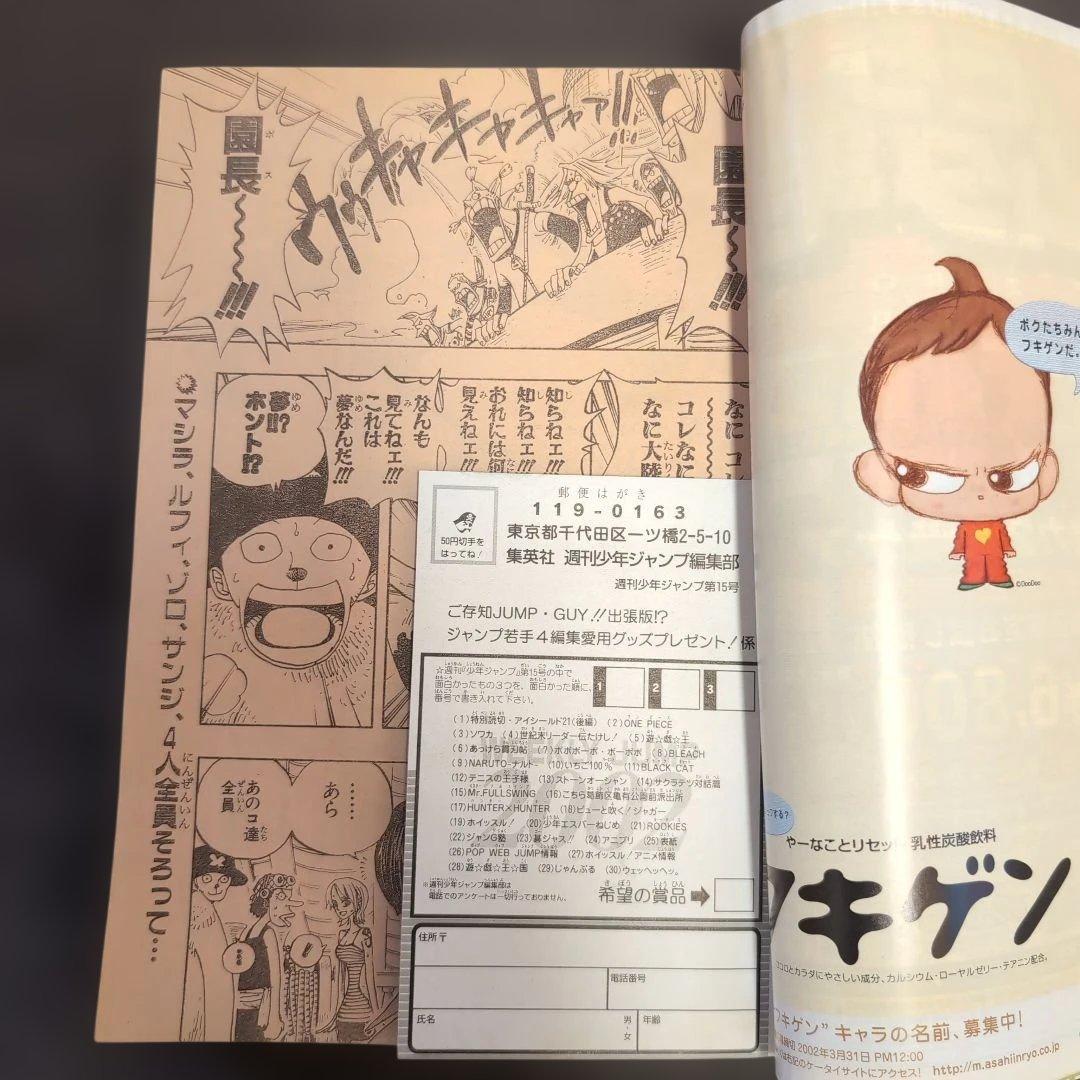 園長〜〜!!!
ボス
ウッキャキャキャキャァ!!
園長
!!!
なに
コレなに
なに大陸
知らねェ!!!
知らねェ!!
おれには何
見えねェ
なんも
見てねェ!!!
これは
夢なんだ!!!
夢!!?
ホント!?
マシラ、ルフィ、ゾロ、サンジ、4人全員そろって…
あら…
あのコ達
全員
郵便はがき
119-0163
50円切手を
はってね!
東京都千代田区一ツ橋2-5-10
集英社 週刊少年ジャンプ編集部
週刊少年ジャンプ第15号
ご存知JUMP・GUY!!出張版!?
ジャンプ若手4編集愛用グッズプレゼント!係
☆週刊『少年ジャンプ』第15号の中で
面白かったもの3つを、面白かった順に、
番号で書き入れて下さい。
1 2 3
(1)特別読切・アイシールド21(後編) (2)ONE PIECE
(3)ソワカ (4)世紀末リーダー伝たけし! (5)遊☆戯☆王
(6)あっけら貫刃帖 (7)ボボボーボ・ボーボボ (8)BLEACH
(9)NARUTO-ナルト- (10)いちご100% (11)BLACK CAT
(12)テニスの王子様 (13)ストーンオーシャン (14)サクラテツ対話篇
(15)Mr.FULLSWING (16)こちら葛飾区亀有公園前派出所
(17)HUNTER×HUNTER (18)ピューと吹く!ジャガー
(19)ホイッスル! (20)少年エスパーねじめ (21)ROOKIES
(22)ジャンG塾 (23)暮ジャス!! (24)アニプリ (25)表紙
(26)POP WEB JUMP情報 (27)ホイッスル!アニメ情報
(28)遊☆戯☆王☆国 (29)じゃんぷる (30)ウェッヘッヘッ。
※週刊少年ジャンプ編集部は
電話でのアンケートは一切行っておりません。
希望の賞品
住所〒
電話番号
氏名
男・女
年齢
ボクたちみん
フキゲンだ。
©DooDoo
やーなことリセット 乳性炭酸飲料
フキゲン
ココロとカラダにやさしい成分、カルシウム・ローヤルゼリー・テアニン配合。
フキゲン”キャラの名前、募集中!
締切 2002年3月31日 PM12:00
は右記のケータイサイトにアクセス! http://m.asahiinryo.co.jp